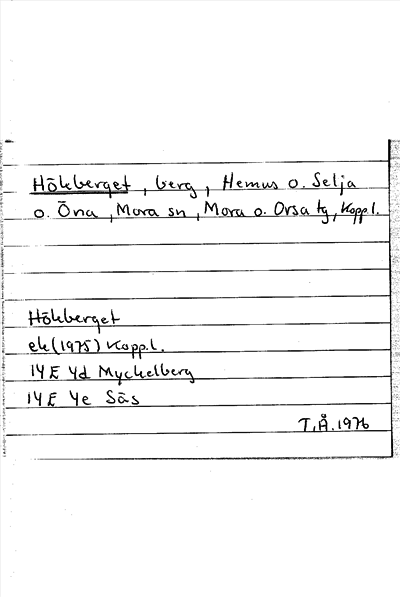 Hökberget, berg, Hemus o. Selja
o. Öna, Mora sn, Mora o. Orsa tg, Kopp l.
Hökberget
ek (1975) Kopp. l.
14 E 4d Myckelberg
14 E 4e Säs
T.Å. 1976